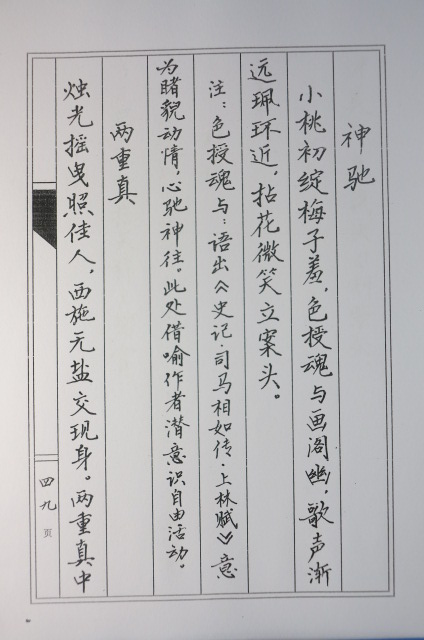 神驰
小桃初绽梅子羞，色授魂与画阁幽，歌声渐
远珮环近，拈花微笑立案头。
注：色授魂与：语出《史记·司马相如传·上林赋》意
为睹貌动情，心驰神往。此处借喻作者潜意识自由活动。
两重真
烛光摇曳照佳人，西施无盐交现身。两重真中
四九页